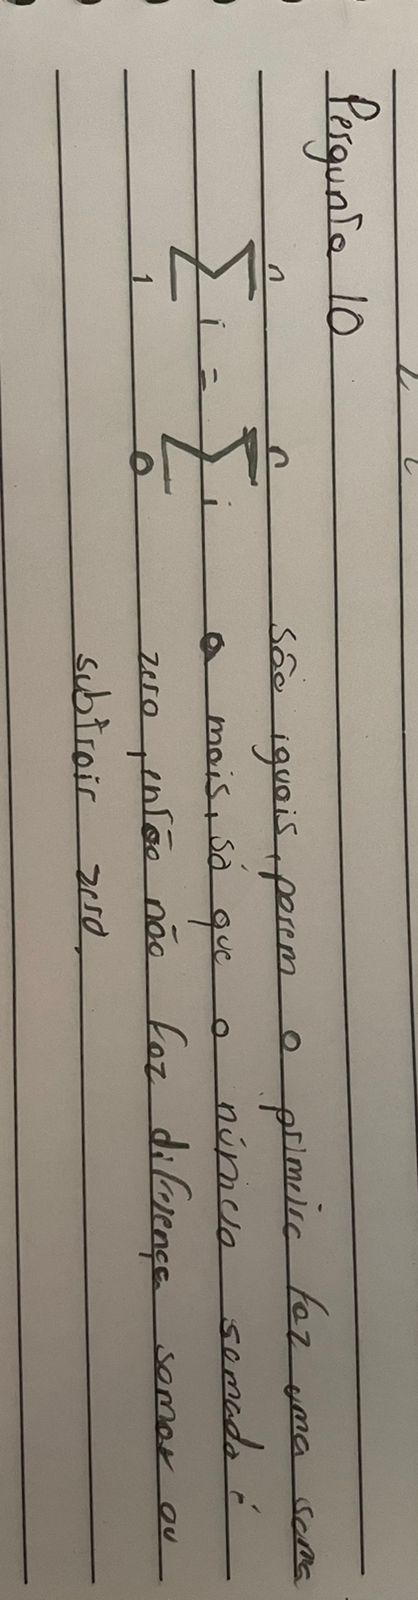 Pergunta 10
n n
∑ i = ∑ i
1 0
são iguais, porem o primeiro faz uma soma
a mais, só que o número somado é
zero, então não faz diferença somar ou
subtrair zero.